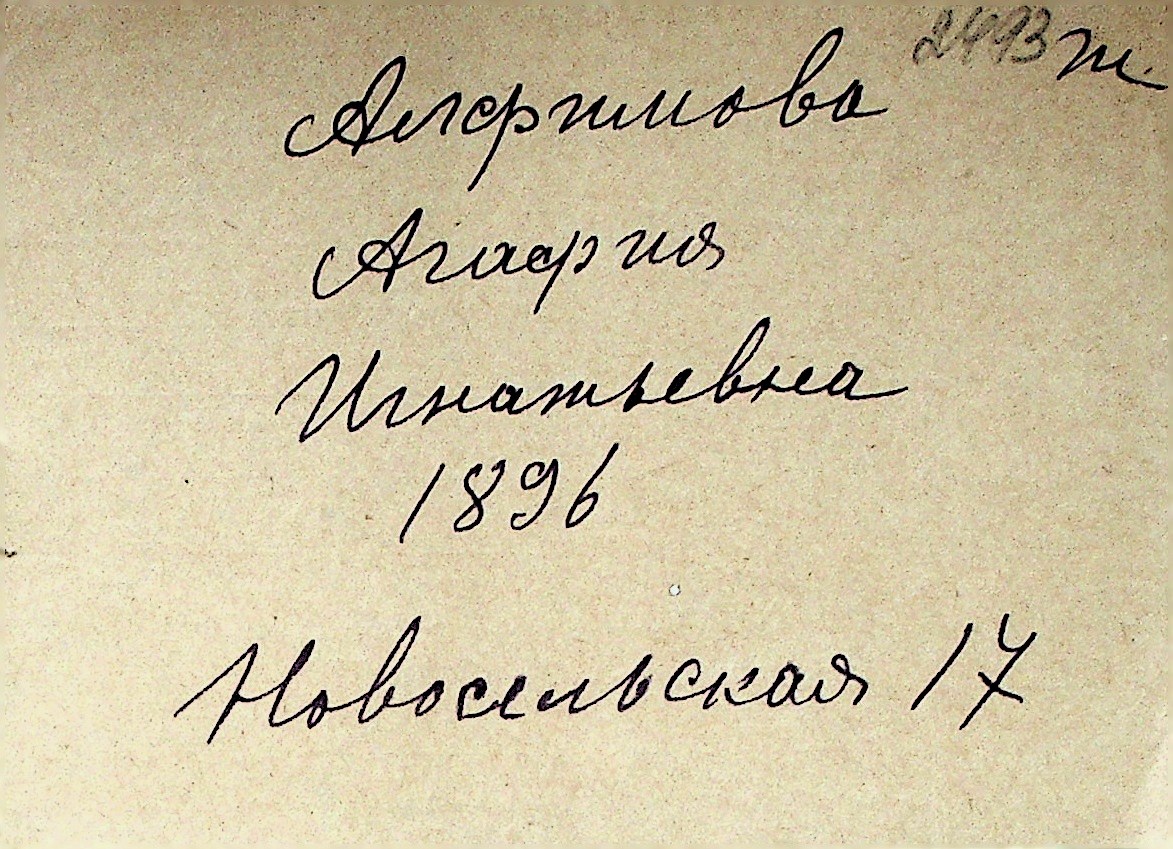 2493 т
Алфимова
Агафия
Игнатьевна
1896
Новосельская 17